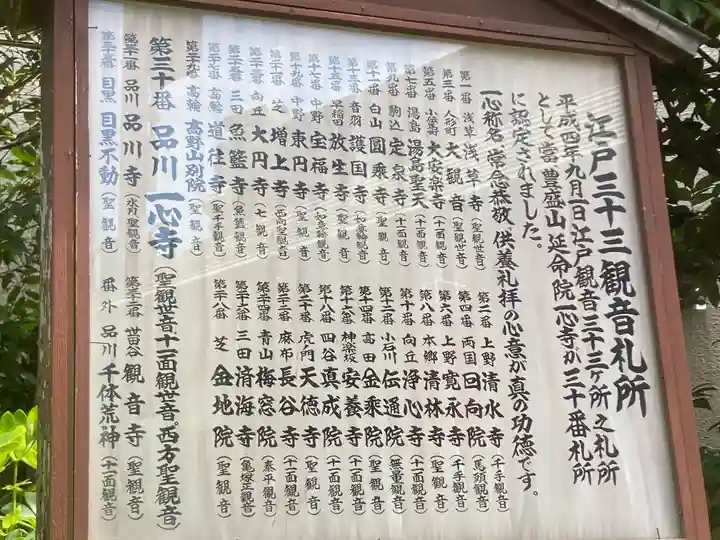 江戸三十三観音札所
平成四年九月一日江戸観音三十三ヶ所之札所
として当豊盛山延命院一心寺が三十番札所
に認定されました。
一心称名常念恭敬供養礼拝の心意が真の功徳です。
第一番 浅草 浅草寺(聖観世音)
第二番 上野 清水寺(千手観音)
第三番 人形町 大観音(聖観世音)
第四番 両国 回向院(馬頭観音)
第五番 小伝馬 大安楽寺(十一面観音)
第六番 上野 寛永寺(千手観音)
第七番 湯島 湯島聖天(十一面観音)
第八番 本郷 清林寺(聖観音)
第九番 駒込 定泉寺(十一面観音)
第十番 向丘 浄心寺(十一面観音)
第十一番 白山 圓乗寺(聖観音)
第十二番 小石川 伝通院(無量観音)
第十三番 音羽 護国寺(如意輪観音)
第十四番 高田 金乗院(聖観音)
第十五番 早稲田 放生寺(聖観音)
第十六番 神楽坂 安養寺(十一面観音)
第十七番 中野 宝福寺(如意輪観音)
第十八番 四谷 真成院(十一面観音)
第十九番 中野 東円寺(聖観音)
第二十番 虎ノ門 天徳寺(聖観音)
第二十一番 芝 増上寺(西向聖観音)
第二十二番 麻布 長谷寺(十一面観音)
第二十三番 向丘 大円寺(七観音)
第二十四番 青山 梅窓院(泰平観音)
第二十五番 三田 魚籃寺(魚籃観音)
第二十六番 三田 済海寺(亀塚正観音)
第二十七番 高輪 道往寺(聖千手観音)
第二十八番 芝 金地院(聖観音)
第二十九番 高輪 高野山別院(聖観音)
第三十番 品川 一心寺(聖観世音十一面観世音。西方聖観音)
第三十一番 品川 品川寺(水月聖観音)
第三十二番 世田谷 観音寺(聖観音)
第三十三番 目黒 目黒不動(聖観音)
番外 品川 千体荒神(十一面観音)